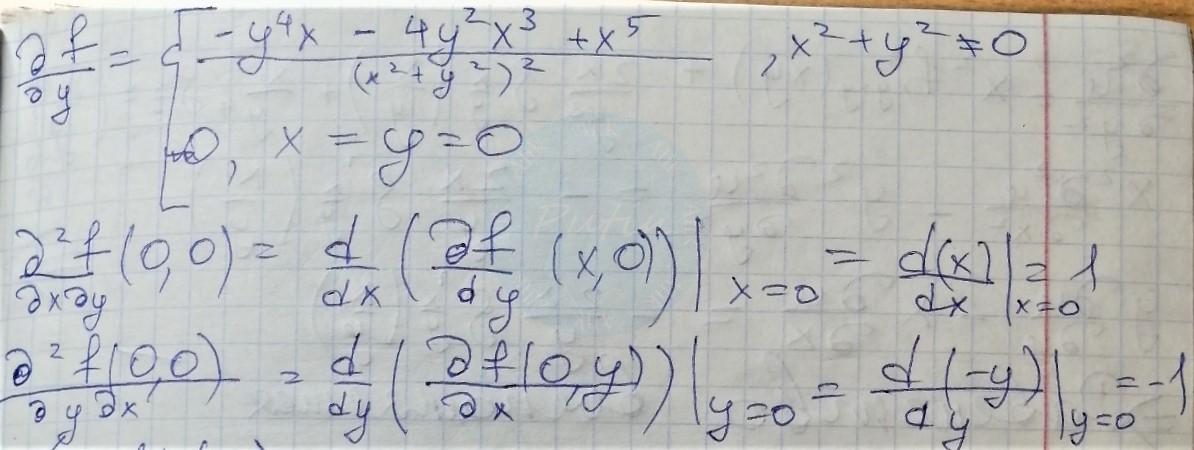 ∂f/∂y = { (-y⁴x - 4y²x³ + x⁵)/(x² + y²)², x² + y² ≠ 0
0, x = y = 0
∂²f/∂x∂y (0,0) = d/dx (∂f/dy (x,0))|x=0 = d(x)/dx|x=0 = 1
∂²f(0,0)/∂y∂x = d/dy (∂f(0,y)/∂x)|y=0 = d(-y)/dy|y=0 = -1